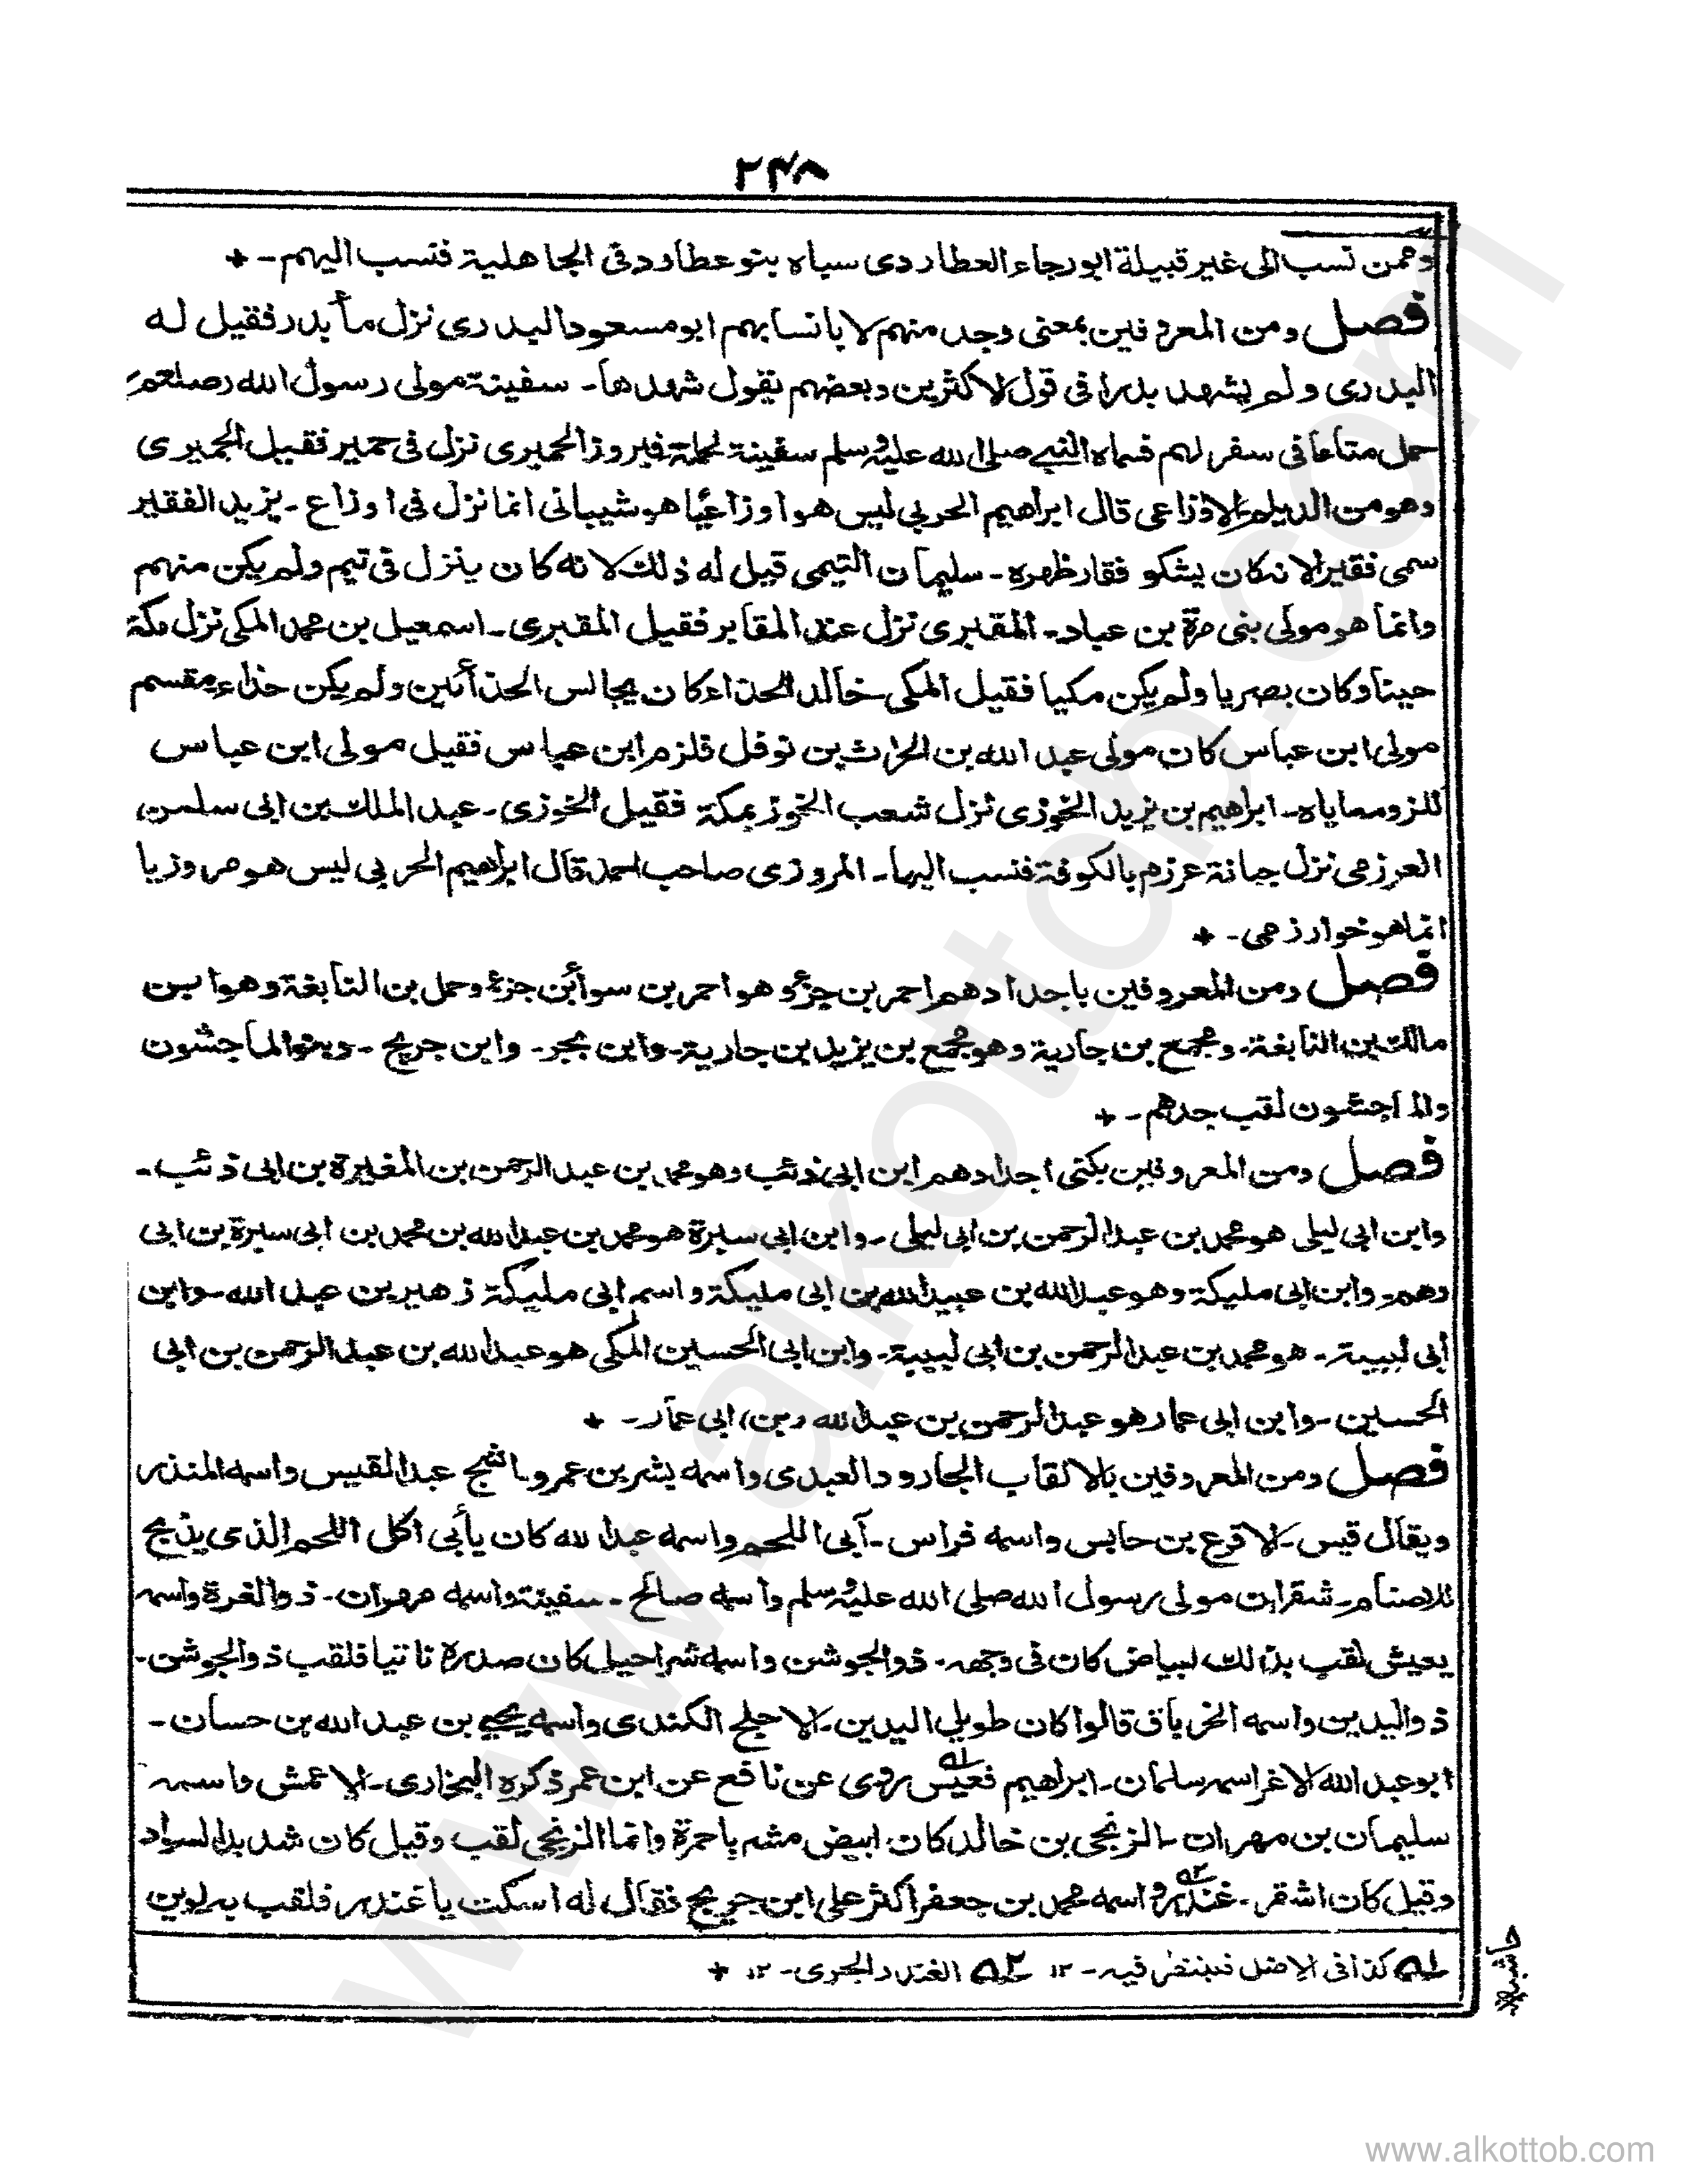 ۲۴۸
وممن نسب الى غير قبيلة ابورجاء العطاردى سباه بنو عطارد فى الجاهلية فنسب اليهم۔ +
فصل ومن المعروفين بمعنى وجد منهم لا بانسابهم ابو مسعود البدرى نزل مأ بدر فقيل له
البدرى ولم يشهد بدرا فى قول الاكثرين وبعضهم يقول شهدها۔ سفينة مولى رسول الله رصلعم
حمل متاعا فى سفر لهم فسماه النبى صلى الله عليه وسلم سفينة لحمله فيروز الحميرى نزل فى حمير فقيل الحميرى
وهو من الديلم۔ الاوزاعى قال ابراهيم الحربى ليس هو اوزاعيا هو شيبانى انما نزل فى اوزاع۔ يزيد الفقير
سمى فقيرا لانه كان يشكو فقار ظهره۔ سليمان التيمى قيل له ذلك لانه كان ينزل فى تيم ولم يكن منهم
وانما هو مولى بنى مرة بن عباد۔ المقبرى نزل عند المقابر فقيل المقبرى۔ اسمعيل بن محمد المكى نزل مكة
حينا وكان بصريا ولم يكن مكيا فقيل المكى خالد الحذاء كان يجالس الحذائين ولم يكن حذاء۔ مقسم
مولى ابن عباس كان مولى عبد الله بن الحارث بن نوفل فلزم ابن عباس فقيل مولى ابن عباس
للزومه اياه۔ ابراهيم بن يزيد الخوزى نزل شعب الخوز بمكة فقيل الخوزى۔ عبد الملك بن ابى سلمن
العرزمى نزل جبانة عرزم بالكوفة فنسب اليها۔ المروزى صاحب احمد قال ابراهيم الحربى ليس هو مروزيا
انما هو خوارزمى۔ +
فصل ومن المعروفين باجدادهم احمر بن جزء وهو احمر بن سوأ بن جزء وحمل بن النابغة وهو ابن
مالك بن النابغة۔ ومجمع بن جارية وهو مجمع بن يزيد بن جارية۔ وابن بحر۔ وابن جريج۔ وبنو الماجشون
والماجشون لقب جدهم۔ +
فصل ومن المعروفين بكنى اجدادهم ابن ابى ذئب وهو محمد بن عبد الرحمن بن المغيرة بن ابى ذئب۔
وابن ابى ليلى هو محمد بن عبد الرحمن بن ابى ليلى۔ وابن ابى سبرة هو محمد بن عبد الله بن محمد بن ابى سبرة بن ابى
وهم۔ وابن ابى مليكة وهو عبد الله بن عبيد الله بن ابى مليكة واسم ابى مليكة زهير بن عبد الله۔ وابن
ابى لبيبة۔ هو محمد بن عبد الرحمن بن ابى لبيبة۔ وابن ابى الحسين المكى هو عبد الله بن عبد الرحمن بن ابى
الحسين۔ وابن ابى عمار هو عبد الرحمن بن عبد الله (بن) ابى عمار۔ +
فصل ومن المعروفين بالالقاب الجارود العبدى واسمه بشر بن عمرو۔ اشج عبد القيس واسمه المنذر
ويقال قيس۔ الاقرع بن حابس واسمه فراس۔ آبى اللحم واسمه عبد الله كان يأبى اكل اللحم الذى يذبح
للاصنام۔ شقران مولى رسول الله صلى الله عليه وسلم واسمه صالح۔ سفينة واسمه مهران۔ ذو الغرة واسمه
يعيش لقب بذلك لبياض كان فى وجهه۔ ذو الجوشن واسمه شراحيل كان صدره ناتيا فلقب ذو الجوشن۔
ذو اليدين واسمه الخرباق قالوا كان طويل اليدين۔ الاجلح الكندى واسمه يحيى بن عبد الله بن حسان۔
ابو عبد الله الاغر اسمه سلمان۔ ابراهيم قعيس ؎۱ روى عن نافع عن ابن عمر ذكره البخارى۔ الاعمش واسمه
سليمان بن مهران۔ الزنجى بن خالد كان ابيض مشربا حمرة وانما الزنجى لقب وقيل كان شديد السواد
وقيل كان اشقر۔ غندر ؎۲ واسمه محمد بن جعفر اكثر على ابن جريج فقال له اسكت يا غندر فلقب به۔ لوين
؎۱ كذا فى الاصل فينظر فيه۔ ۱۲ ؎۲ الغندر الجرى۔ ۱۲ +
حاشيه
www.alkottob.com
www.alkottob.com